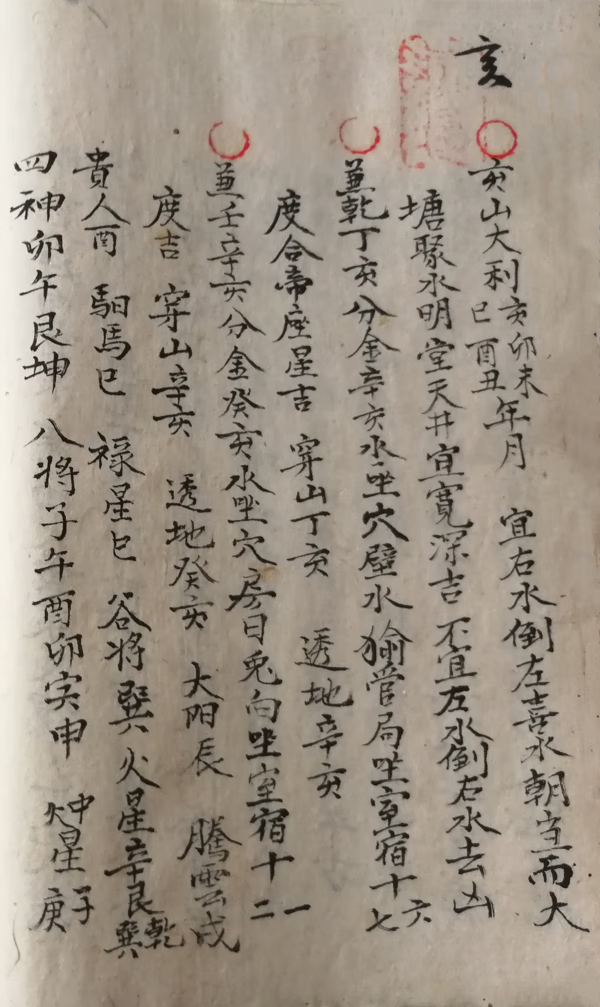 亥
亥山大利亥卯未巳酉丑年月 宜右水倒左喜水朝堂而大
塘聚水明堂天井宜寬深吉 不宜左水倒右水去凶
兼乾丁亥分金辛亥水坐穴壁水㺄管局坐室宿十六七
度合帝座星吉 穿山丁亥 透地辛亥
兼壬辛亥分金癸亥水坐穴房日兎向坐室宿十一二
度吉 穿山辛亥 透地癸亥 大阳辰 騰雲戌
貴人酉 馹馬巳 禄星巳 谷将巽 火星辛艮乾巽
四神卯午艮坤 八将子午酉卯寅申 中火星子庚